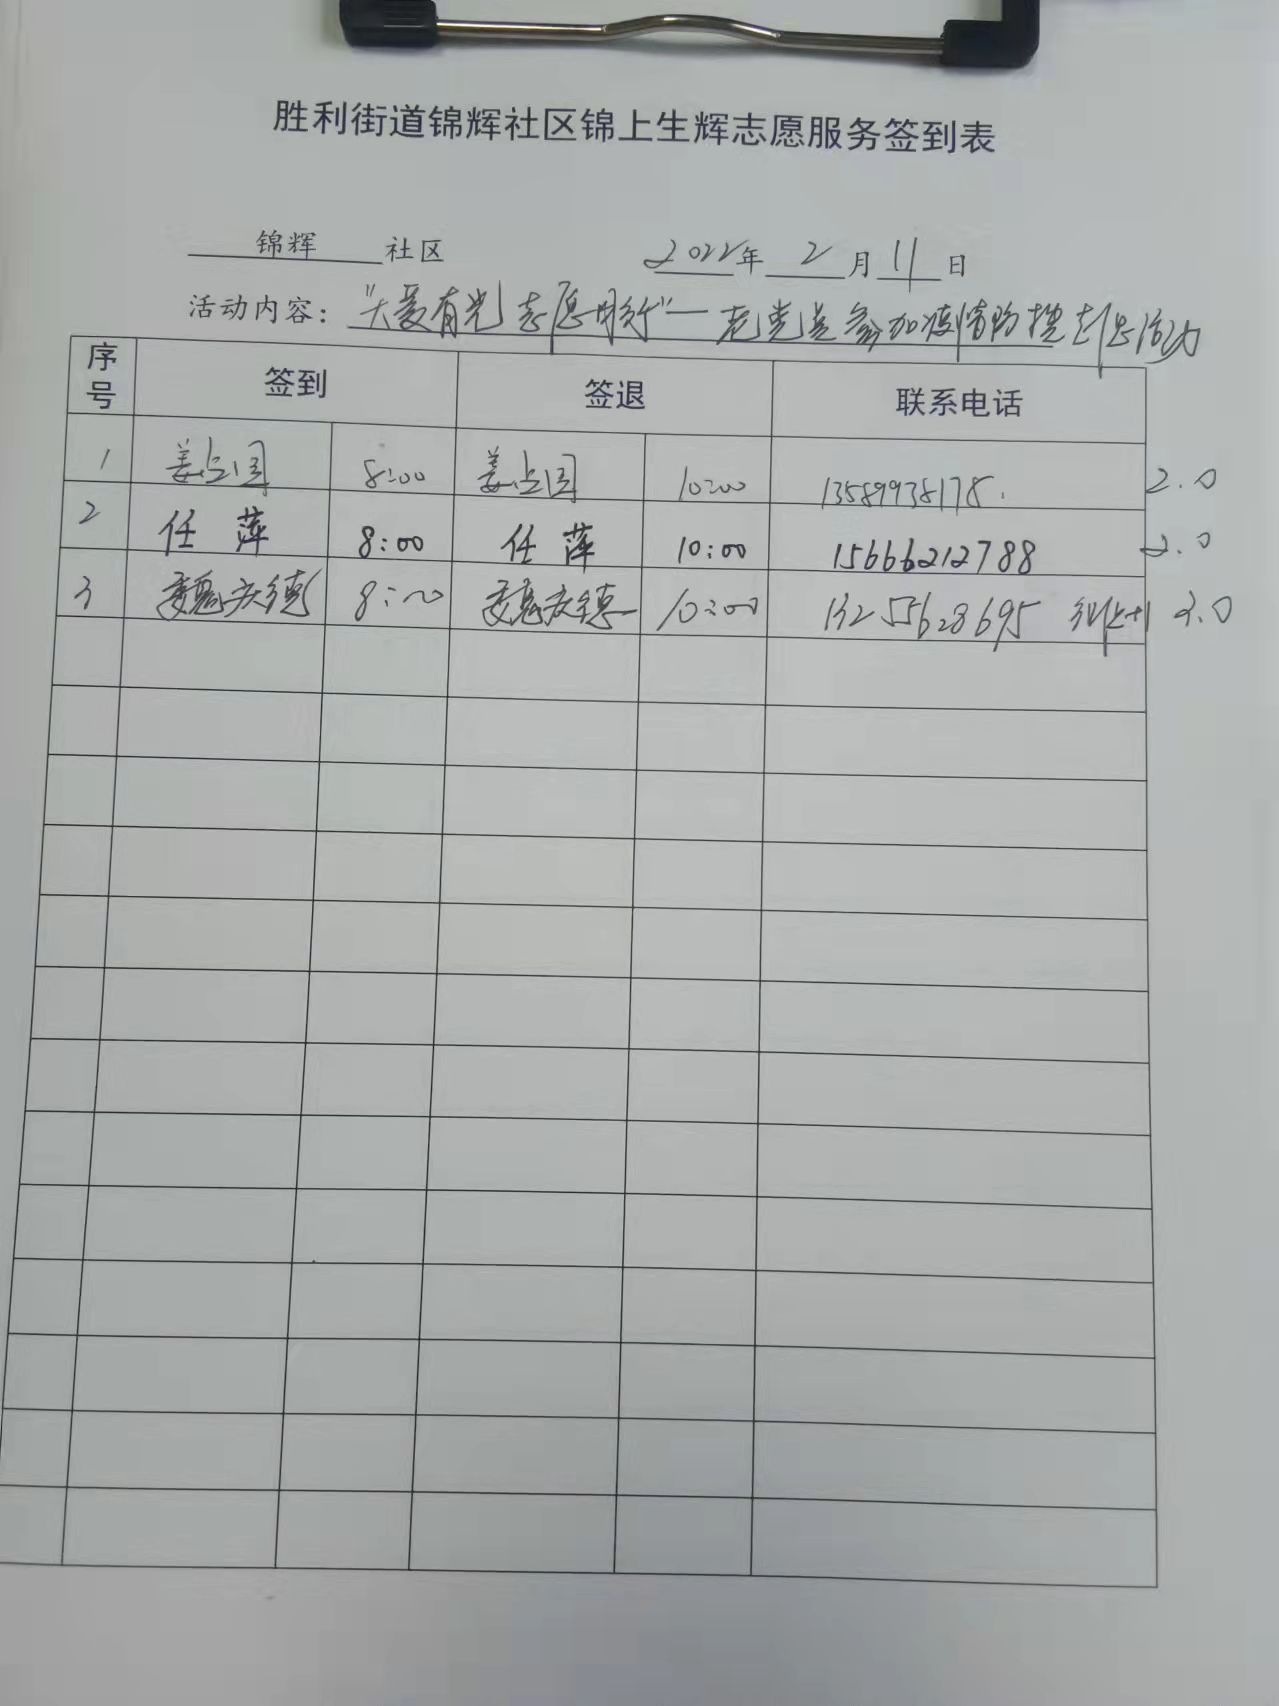 胜利街道锦辉社区锦上生辉志愿服务签到表
锦辉 社区 2022年 2 月 11 日
活动内容："大爱有光 志愿同行"—老党员参加疫情防控志愿活动
序号 签到 签退 联系电话
1 姜占国 8:00 姜占国 10:00 13589938178. 2.0
2 任萍 8:00 任萍 10:00 15666212788 2.0
3 魏庆德 8:00 魏庆德 10:00 13255628695 2.0